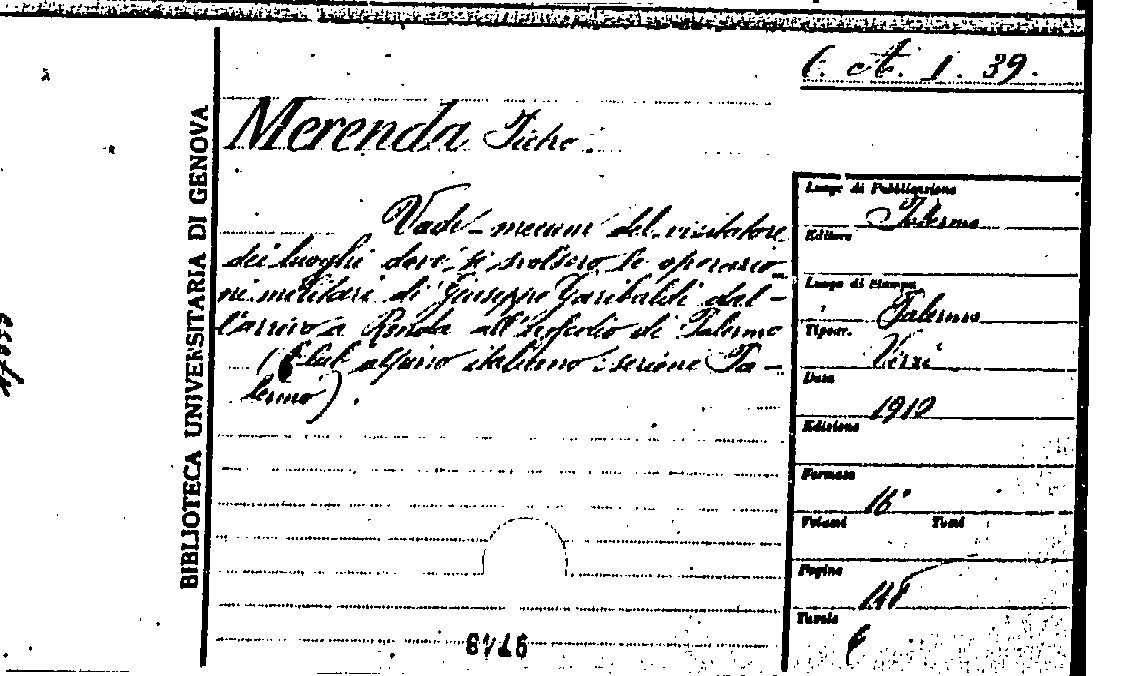 6. A. 1. 39.
BIBLIOTECA UNIVERSITARIA DI GENOVA
Merenda
Vade-mecum del visitatore
dei luoghi dove si svolsero le operazio-
ni militari di Giuseppe Garibaldi dal-
l'arrivo a Renda all' di Palermo
(Club alpino italiano: sezione Pa-
lermo).
Luogo di Pubblicazione
Palermo
Editore
Luogo di Stampa
Palermo
Tipogr.
Virzì
Data
1910
Edizione
Formato
16°
Volumi Tomi
Pagine
148
Tavole